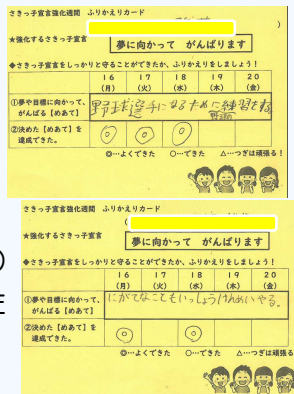 さきっ子宣言強化週間 ふりかえりカード
)
★強化するさきっ子宣言
夢に向かって がんばります
◆さきっ子宣言をしっかりと守ることができたか、ふりかえりをしましょう!
16 17 18 19 20
(月) (火) (水) (木) (金)
①夢や目標に向かって、がんばる【めあて】
野球選手になるために練習をする
野球の
②決めた【めあて】を達成できた。
◎ ◎ ◎
◎…よくできた ○…できた △…つぎは頑張る!
さきっ子宣言強化週間 ふりかえりカード
(
★強化するさきっ子宣言
夢に向かって がんばります
◆さきっ子宣言をしっかりと守ることができたか、ふりかえりをしましょう!
16 17 18 19 20
(月) (火) (水) (木) (金)
①夢や目標に向かって、がんばる【めあて】
にがてなこともいっしょうけんめいやる。
②決めた【めあて】を達成できた。
◎ ◎
◎…よくできた ○…できた △…つぎは頑張る